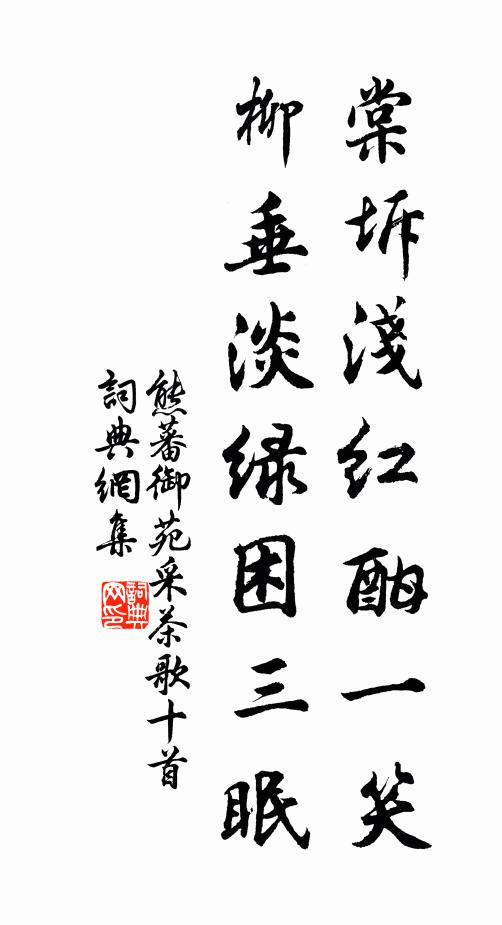 棠坼淺紅酣一笑
柳垂淡綠困三眠
熊蕃御苑采茶歌十首
詞典網集
詞典网印